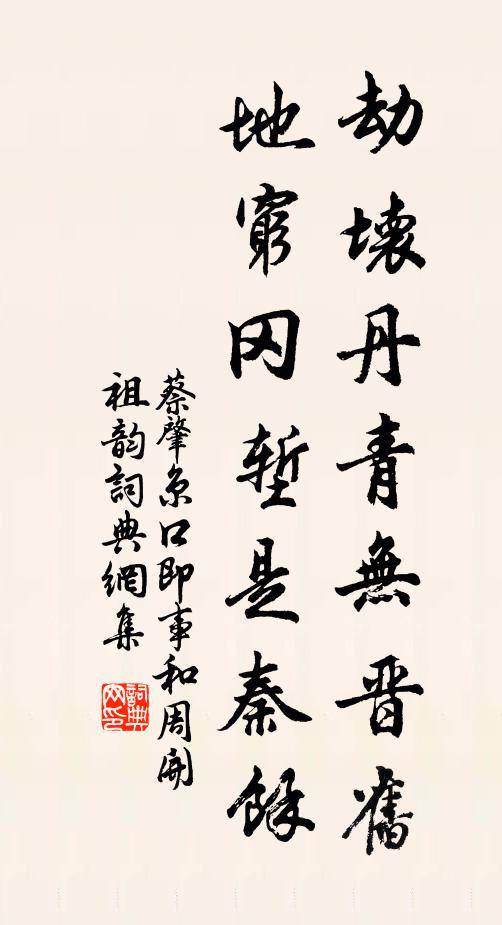 劫壞丹青無晋舊
地窮冈塹是秦餘
蔡肇京口即事和周開
祖韵詞典網集
詞典网印